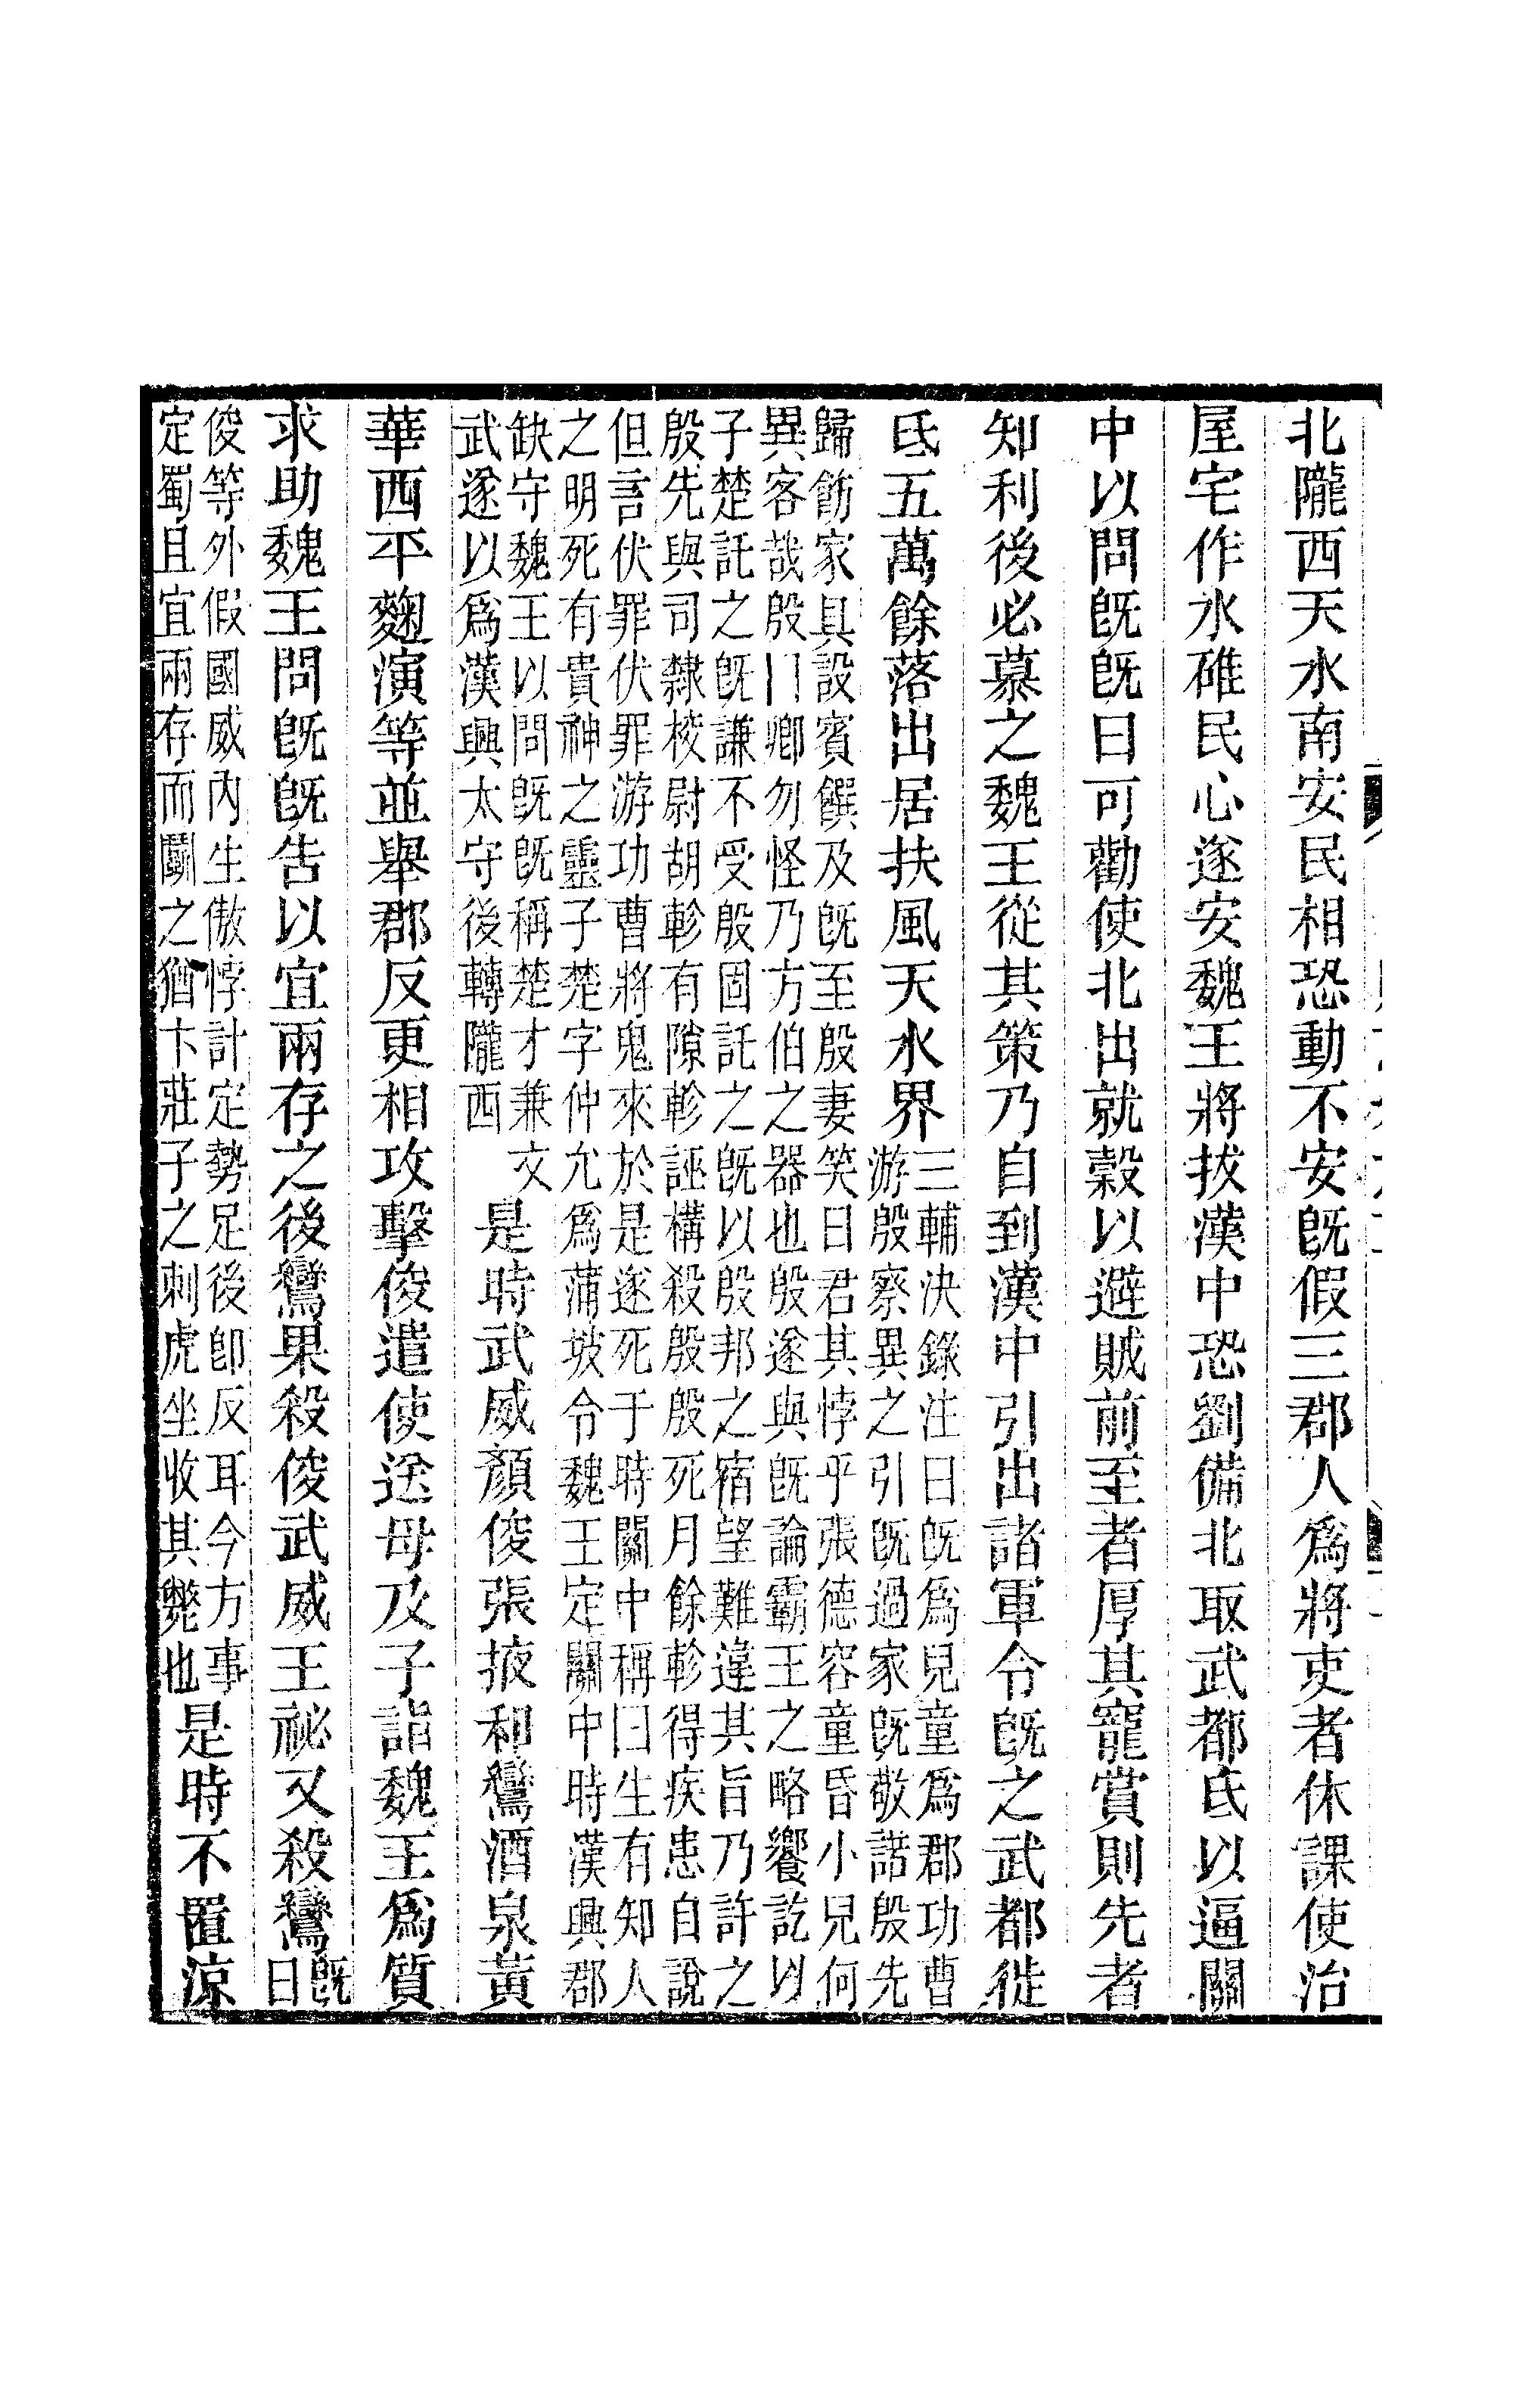 北隴西天水南安民相恐動不安既假三郡人爲將吏者休課使治
屋宅作水碓民心遂安魏王將拔漢中恐劉備北取武都氐以逼關
中以問既既曰可勸使北出就穀以避賊前至者厚其寵賞則先者
知利後必慕之魏王從其策乃自到漢中引出諸軍令既之武都徙
氐五萬餘落出居扶風天水界
三輔決錄注曰既爲兒童爲郡功曹
游殷察異之引既過家既敬諾殷先
歸飭家具設賓饌及既至殷妻笑曰君其悖乎張德容童昏小兒何
異客哉殷曰卿勿怪乃方伯之器也殷遂與既論霸王之略饗訖以
子楚託之既謙不受殷固託之既以殷邦之宿望難違其旨乃許之
殷先與司隸校尉胡軫有隙軫誣構殺殷殷死月餘軫得疾患自說
但言伏罪伏罪游功曹將鬼來於是遂死于時關中稱曰生有知人
之明死有貴神之靈子楚字仲允爲蒲坡令魏王定關中時漢興郡
缺守魏王以問既既稱楚才兼文
武遂以爲漢興太守後轉隴西
是時武威顏俊張掖和鸞酒泉黃
華西平麴演等並舉郡反更相攻擊俊遣使送母及子詣魏王爲質
求助魏王問既既告以宜兩存之後鸞果殺俊武威王祕又殺鸞
既
曰
俊等外假國威內生傲悖計定勢足後卽反耳今方事
定蜀且宜兩存而鬭之猶卞莊子之刺虎坐收其斃也
是時不置涼